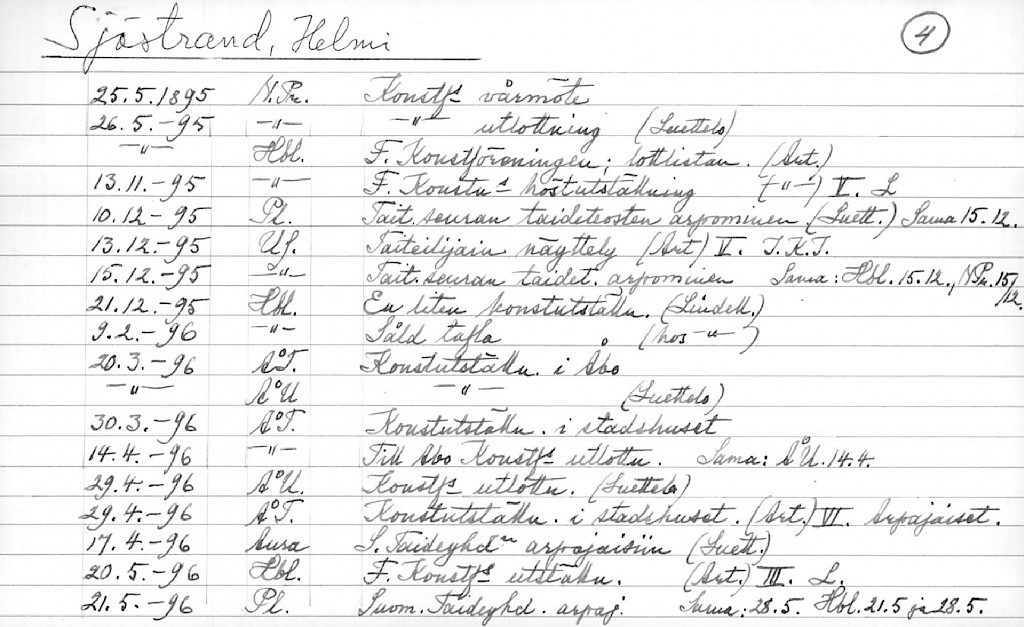 Sjöstrand, Helmi 4
25.5.1895 N.Pr. Konstf:s vårmöte
26.5.-95 -"- -"- utlottning (Luettelo)
-"- Hbl. F. Konstföreningen; lottlistan. (Art.)
13.11.-95 -"- F. Konstn:s höstutställning (-"-) V. L
10.12-95 Pl. Tait.seuran taideteosten arpominen (Luett.) Sama 15.12.
13.12-95 Uf. Taiteilijain näyttely (Art) V. J.K.I.
15.12.-95 -"- Tait.seuran taidet. arpominen Sama: Hbl. 15.12., N.Pr. 15/12.
21.12.-95 Hbl. En liten konstutställn. (Lindell.)
9.2.-96 -"- Såld tafla (hos -"-)
20.3.-96 ÅT. Konstutställn. i Åbo
-"- ÅU -"- (Luettelo)
30.3.-96 ÅT. Konstutställn. i stadshuset
14.4.-96 -"- Till Åbo Konstf:s utlottn. Sama: ÅU. 14.4.
29.4.-96 ÅU. Konstf:s utlottn. (Luettelo)
29.4.-96 ÅT. Konstutställn. i stadshuset. (Art.) VI. Arpajaiset.
17.4.-96 Aura S. Taideyhd:n arpajaisiin (Luett.)
20.5.-96 Hbl. F. Konstf:s utställn. (Art.) III. L.
21.5.-96 Pl. Suom. Taideyhd. arpaj. Sama: 28.5. Hbl. 21.5 ja 28.5.